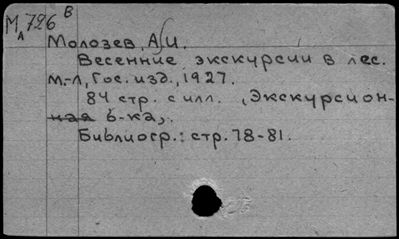 М 726 В
А
Молозев, А.И.
Весенние экскурсии в лес.
М.-Л., Гос. изд., 1927.
84 стр. с илл. (Экскурсион-
ная б-ка).
Библиогр.: стр. 78-81.